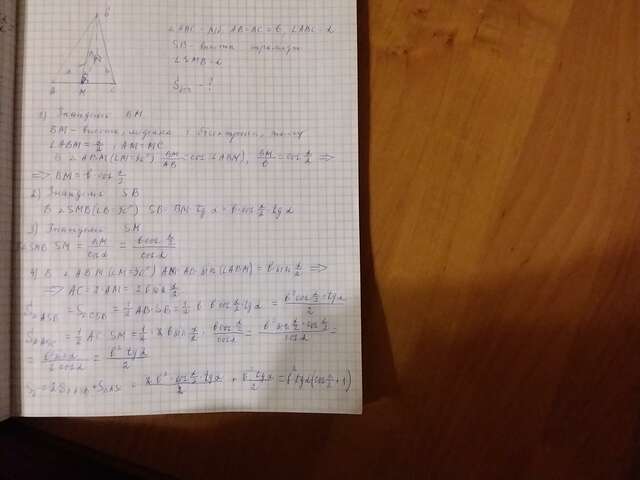 S
A
M
C
∠ABC - р/б, AB=BC=b, ∠ABC=α
SB - висота
∠SMB=α
S - ?
1) Знайдемо BM
BM - висота, медіана і бісектриса, тому
∠ABM=α/2, AM=MC
В ∠ABM(∠M=90°) BM/AB=cos(∠ABM), BM/b=cos α/2 ⇒
⇒ BM=b cos α/2
2) Знайдемо SB
В ∠SMB(∠B=90°) SB=BM·tg α=b·cos α/2·tg α
3) Знайдемо SM
SM = BM/cos α = b cos α/2 / cos α
4) В ∠ABM(∠M=90°) AM=AB·sin(∠ABM)=b sin α/2 ⇒
⇒ AC=2·AM=2b sin α/2
S ASB = S CSB = 1/2 AB·SB = 1/2 b·b cos α/2·tg α = b² cos α/2·tg α / 2
S ASC = 1/2 AC·SM = 1/2·2b sin α/2 · b cos α/2 / cos α = b² sin α/2·cos α/2 / cos α =
= b² sin α / 2 cos α = b² tg α / 2
S = 2S ASB + S ASC = 2·b²·cos α/2·tg α / 2 + b² tg α / 2 = b² tg α(cos α/2 + 1)